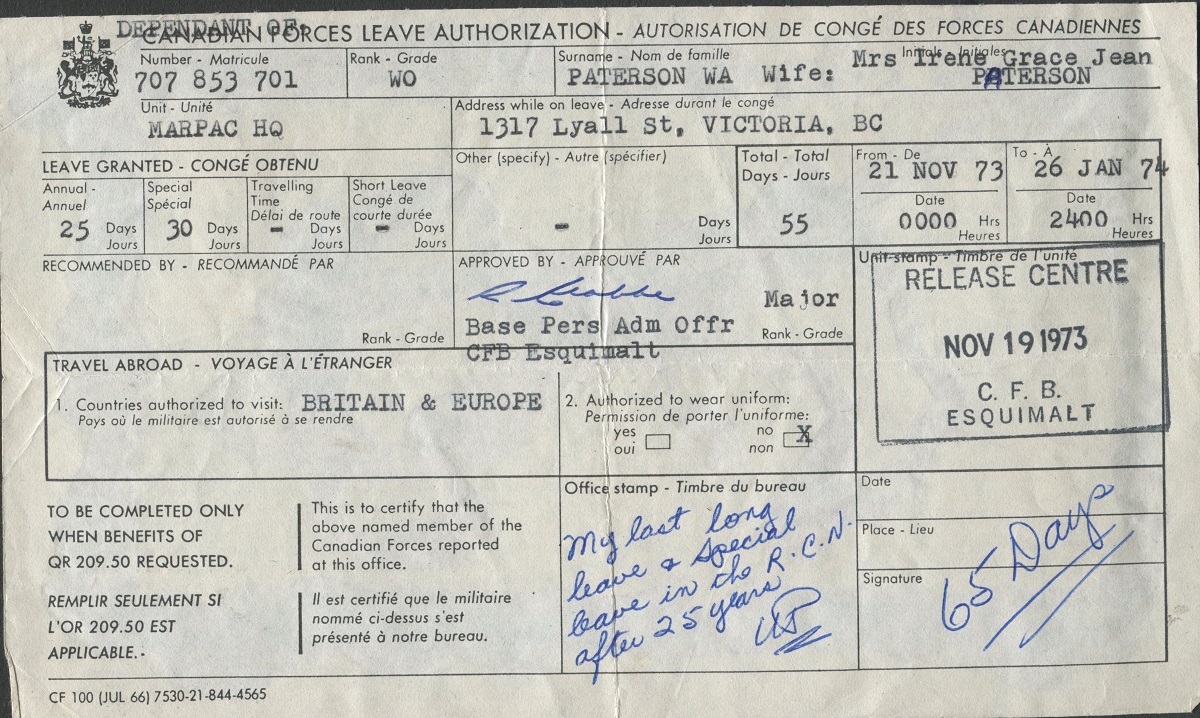 DEPENDANT OF:
CANADIAN FORCES LEAVE AUTHORIZATION - AUTORISATION DE CONGÉ DES FORCES CANADIENNES
Number - Matricule
707 853 701
Rank - Grade
WO
Surname - Nom de famille
PATERSON WA Wife:
Initials - Initiales
Mrs Irene Grace Jean
PATERSON
Unit - Unité
MARPAC HQ
Address while on leave - Adresse durant le congé
1317 Lyall St, VICTORIA, BC
LEAVE GRANTED - CONGÉ OBTENU
Annual -
Annuel
25 Days
Jours
Special
Spécial
30 Days
Jours
Travelling
Time
Délai de route
- Days
Jours
Short Leave
Congé de
courte durée
- Days
Jours
Other (specify) - Autre (spécifier)
- Days
Jours
Total - Total
Days - Jours
55
From - De
21 NOV 73
Date
0000 Hrs
Heures
To - À
26 JAN 74
Date
2400 Hrs
Heures
RECOMMENDED BY - RECOMMANDÉ PAR
Rank - Grade
APPROVED BY - APPROUVÉ PAR
Major
Base Pers Adm Offr Rank - Grade
CFB Esquimalt
Unit stamp - Timbre de l'unité
RELEASE CENTRE
NOV 19 1973
C. F. B.
ESQUIMALT
TRAVEL ABROAD - VOYAGE À L'ÉTRANGER
1. Countries authorized to visit: BRITAIN & EUROPE
Pays où le militaire est autorisé à se rendre
2. Authorized to wear uniform:
Permission de porter l'uniforme:
yes no X
oui non
TO BE COMPLETED ONLY
WHEN BENEFITS OF
QR 209.50 REQUESTED.
REMPLIR SEULEMENT SI
L'OR 209.50 EST
APPLICABLE.-
This is to certify that the
above named member of the
Canadian Forces reported
at this office.
Il est certifié que le militaire
nommé ci-dessus s'est
présenté à notre bureau.
Office stamp - Timbre du bureau
My last long
leave & special
leave in the R.C.N.
after 25 years
Date
Place - Lieu
Signature
65 Days
CF 100 (JUL 66) 7530-21-844-4565